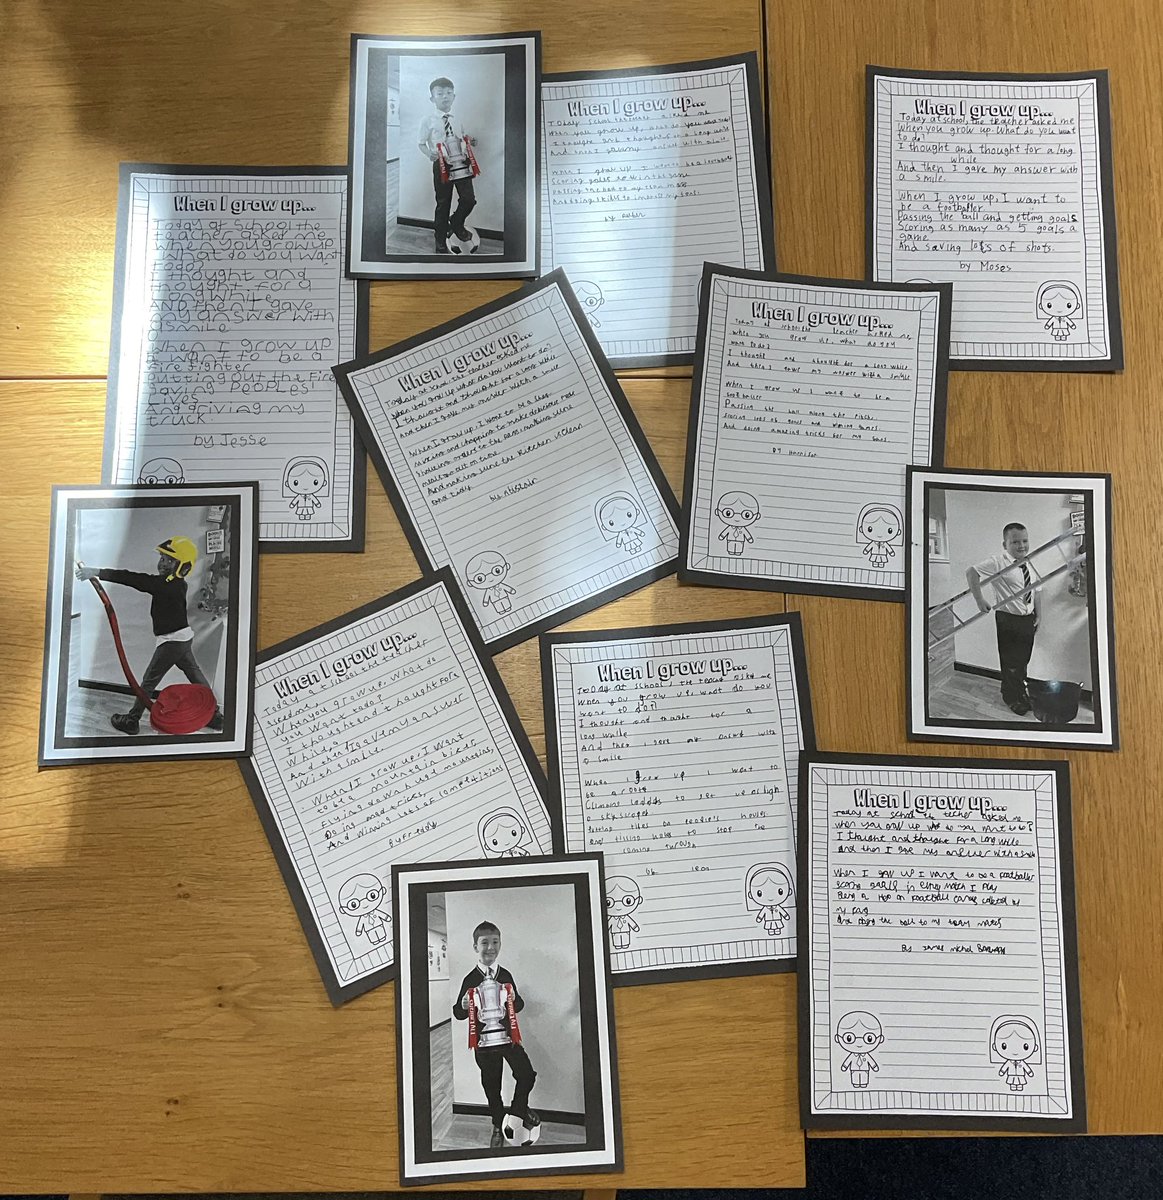 When I grow up...
Today at school the
teacher asked me
When you grow up
What do you want
to do?
I thought and
thought for a
long while
And then I gave
my answer with
a smile
When I grow up
I want to be a
fire fighter
Putting out the fire
Saving People's
lives
And driving my
truck.
by Jesse
When I grow up...
Today
When you grow up, what do you want
I thought and thought for a long
And then I gave my answer with a
When I grow up I want to be a
Scoring goals
passing the ball to my team mates
When I grow up...
Today at school, the teacher asked me
When you grow up. What do you want
to do?
I thought and thought for a long
while
And then I gave my answer with
a smile.
When I grow up, I want to
be a footballer
Passing the ball and getting goals
Scoring as many as 5 goals a
game
And saving lots of shots.
by Moses
When I grow up...
Today at school the teacher asked me
When you grow up what do you want to do?
I thought and thought for a long while
And then I gave my answer with a smile
When I grow up, I want to be a chef
mixing and chopping to make delicious
Shouting orders to the team making sure
meals go out on time
And making sure the kitchen is clean
and tidy.
by Alistair
When I grow up...
Today at school the teacher asked me,
When you grow up, what do you
want to do?
I thought and thought for a long while
And then I gave my answer with a smile
When I grow up I want to be a
footballer
Passing the ball along the pitch,
scoring lots of goals and winning games.
And doing amazing tricks for my fans.
By Harrison
When I grow up...
Today at school the teacher
asked me,
When you grow up, What do
you want to do?
I thought and thought for a
While
And then I gave my answer
With a smile.
When I grow up, I want
to be a mountain biker
Flying down huge mountains,
Doing mad tricks,
And Winning lots of competitions
By Freddy
When I grow up...
Today at school, the teacher asked me
When you grow up, what do you
want to do?
I thought and thought for a
long while
And then I gave my answer with
a smile
When I grow up I want to
be a
Climbing ladders to get up as high
a skyscraper
Putting tiles on people's houses
And filling holes to stop the
coming through
by
When I grow up...
Today at school the teacher asked me
When you grow up what do you want to do?
I thought and thought for a long while
And then I gave my answer with a smile
When I grow up I want to be a footballer
scoring goals in every match I play
Being a on football cards collected by
my fans
And passing the ball to my team mates
By James Michel
Fly Emirates
Fly Emirates